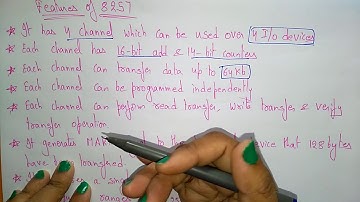 Features of 8257
* It has 4 channel which can be used over 4 I/o devices
* Each channel has 16-bit add & 14-bit counters
* Each channel can transfer data up to 64kb
* Each channel can be programmed independently
* Each channel can perform read transfer, write transfer & verify
transfer operation
* It generates MARK device that 128 bytes
have been transferred.
a sing
ranges